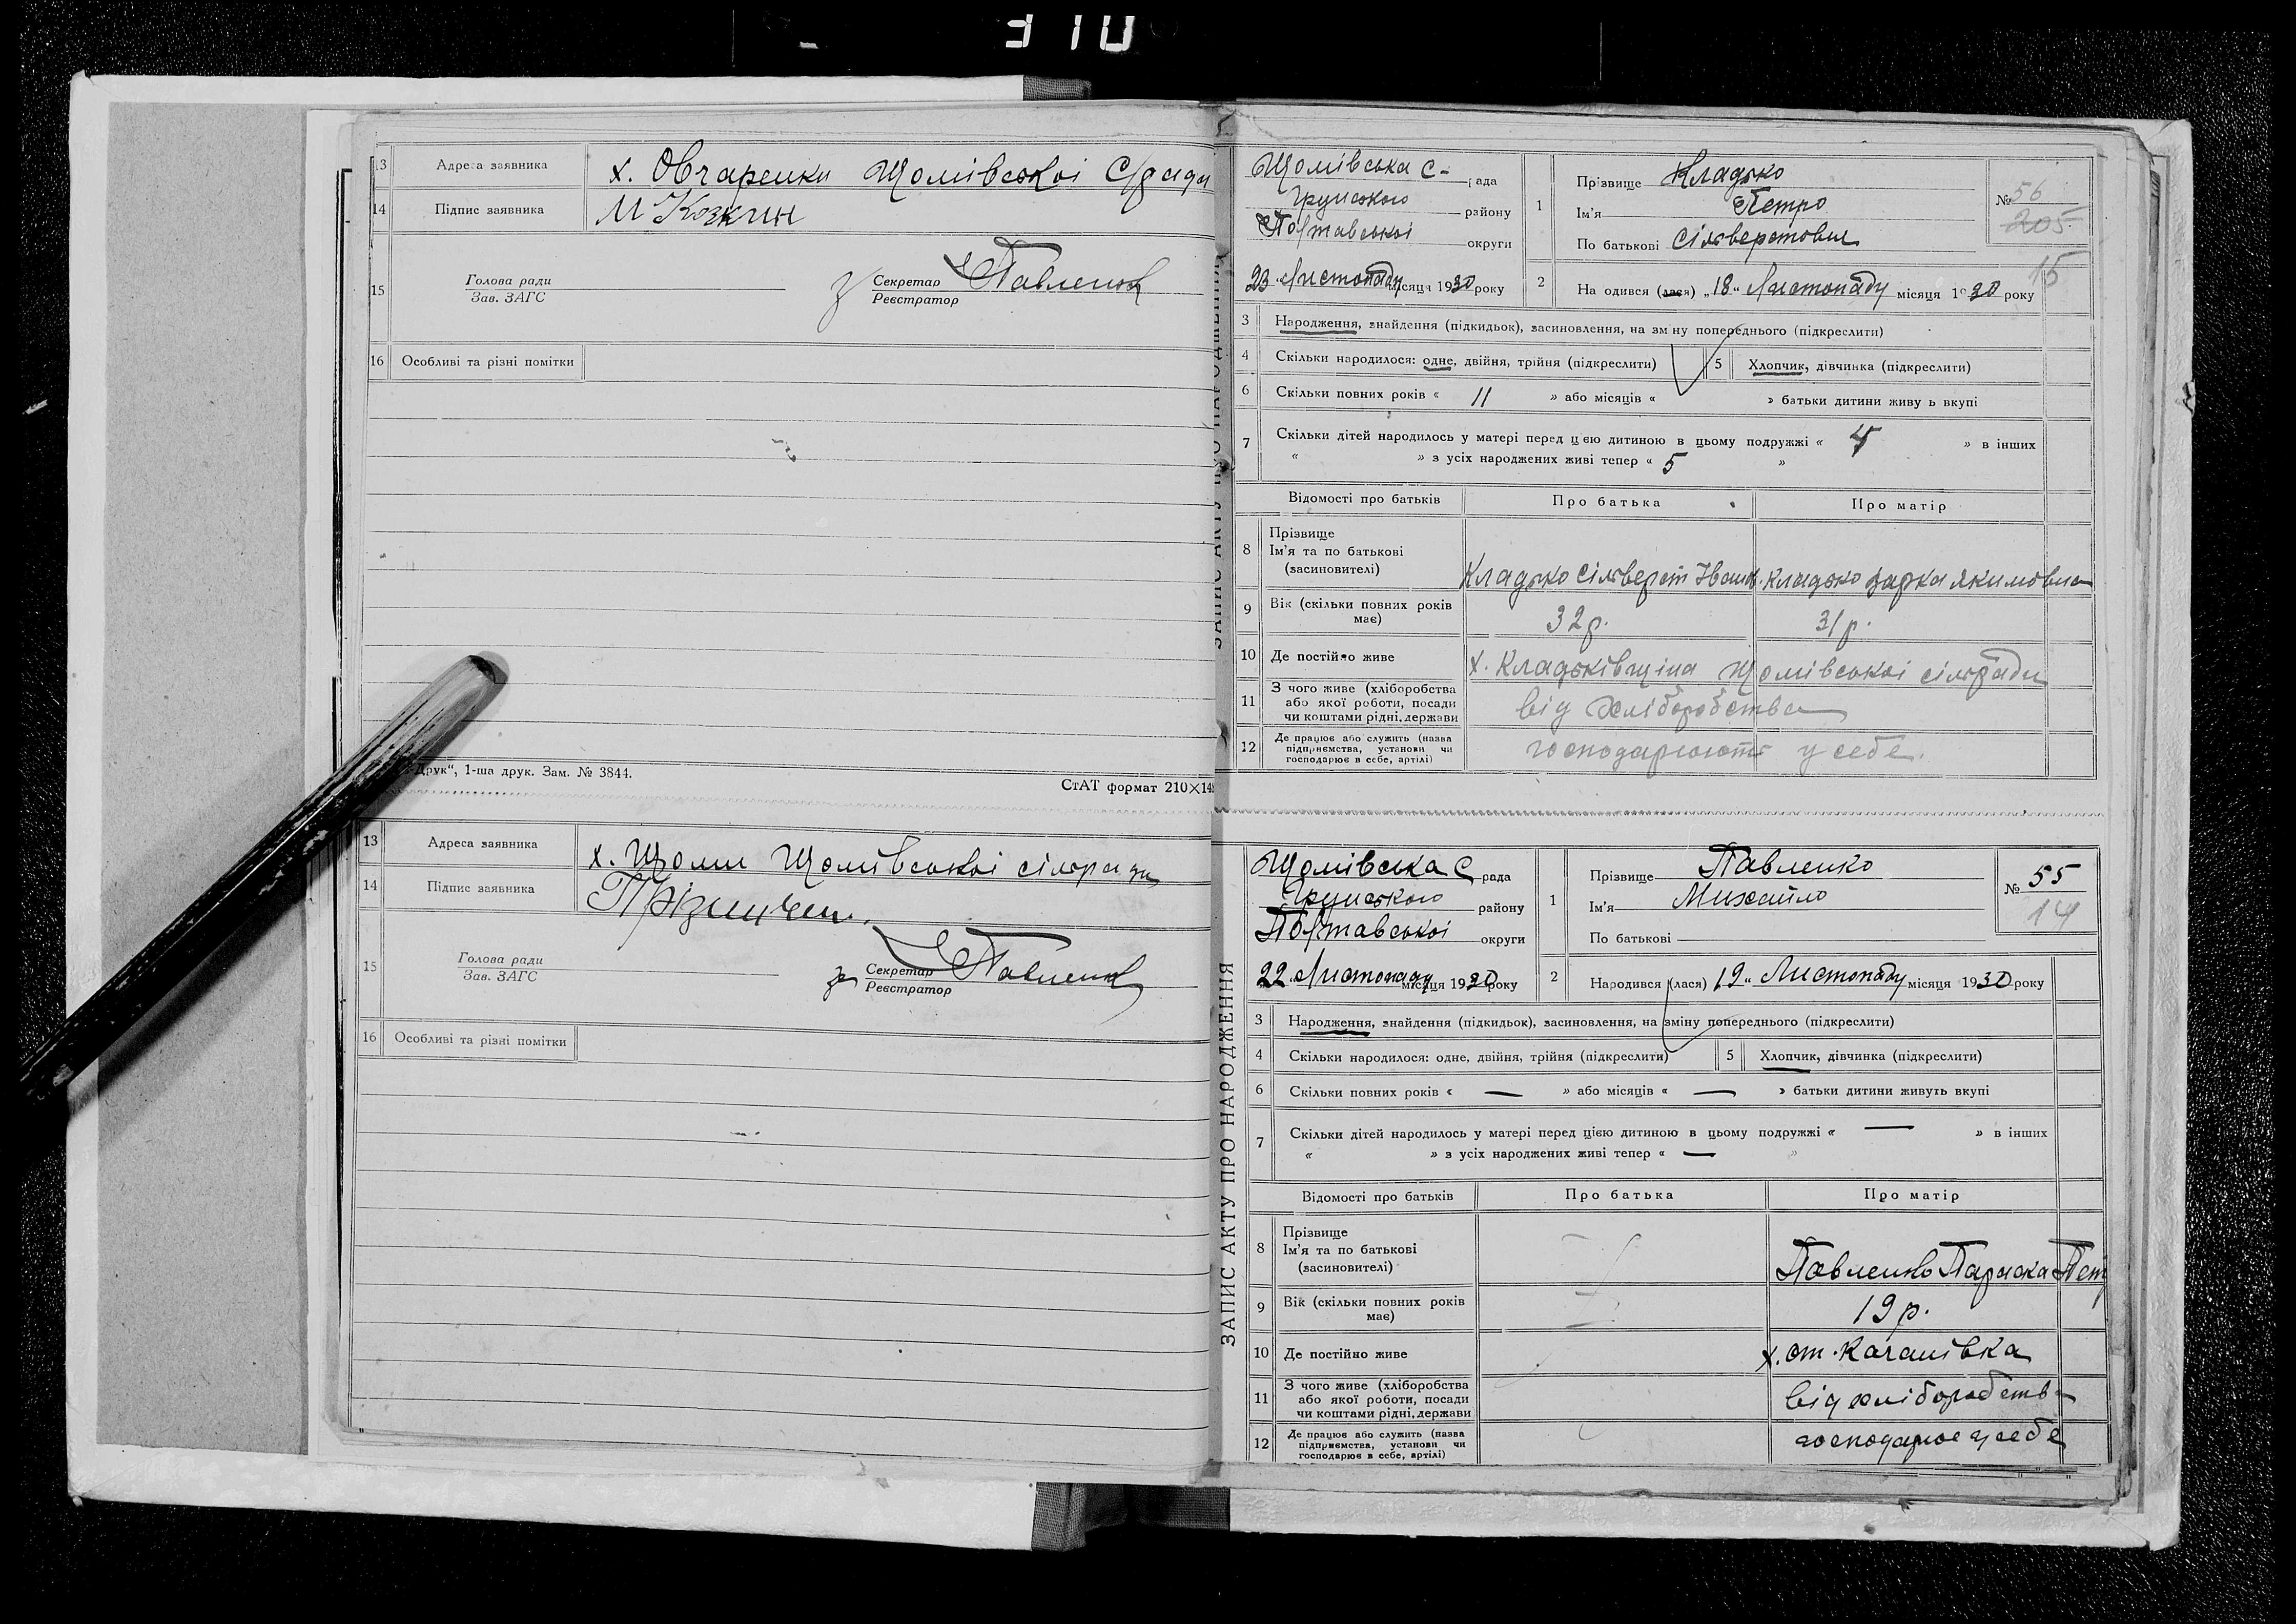 310
13 Адреса заявника х. Овчаренки Щомівськоі С/ради
14 Підпис заявника М Козкин
15 Голова ради
Зав. ЗАГС
Секретар Павленко
Реєстратор
16 Особливі та різні помітки
Друк“, 1-ша друк. Зам. № 3844.
СтАТ формат 210×14
13 Адреса заявника х. Щоми Щомівськоі сільради
14 Підпис заявника
15 Голова ради
Зав. ЗАГС
за Секретар Павленко
Реєстратор
16 Особливі та різні помітки
ЗАПИС АКТУ ПРО НАРОДЖЕННЯ
Щомівська С- рада
Грунського району
Полтавськоі округи
23 Листопаду місяця 1930 року
1 Прізвище Кладько
Ім'я Петро
По батькові Сільверстович
№ 56
205
15
2 На одився (лася) „18“ Листопаду місяця 1930 року
3 Народження, знайдення (підкидьок), засиновлення, на зм ну попереднього (підкреслити)
4 Скільки народилося: одне, двійня, трійня (підкреслити) 5 Хлопчик, дівчинка (підкреслити)
6 Скільки повних років « 11 » або місяців « » батьки дитини живу ь вкупі
7 Скільки дітей народилось у матері перед цією дитиною в цьому подружжі « 4 » в інших
« » з усіх народжених живі тепер « 5 »
Відомості про батьків Про батька Про матір
8 Прізвище
Ім'я та по батькові
(засиновителі)
Кладько Сільверст Іванов. Кладько Варка Якимовна
9 Вік (скільки повних років
має)
32 р. 31 р.
10 Де постійно живе х. Кладьківщина Щомівськоі сільради
11 З чого живе (хліборобства
або якої роботи, посади
чи коштами рідні, держави
від хліборобства
12 Де працює або служить (назва
підприємства, установи чи
господарює в себе, артілі)
господарюють у себе.
ЗАПИС АКТУ ПРО НАРОДЖЕННЯ
Щомівська С рада
Грунського району
Полтавськоі округи
22 Листопаду місяця 1930 року
1 Прізвище Павленко
Ім'я Михайло
По батькові
№ 55
14
2 Народився (лася) 19“ Листопаду місяця 1930 року
3 Народження, знайдення (підкидьок), засиновлення, на зміну попереднього (підкреслити)
4 Скільки народилося: одне, двійня, трійня (підкреслити) 5 Хлопчик, дівчинка (підкреслити)
6 Скільки повних років « — » або місяців « — » батьки дитини живуть вкупі
7 Скільки дітей народилось у матері перед цією дитиною в цьому подружжі « — » в інших
« » з усіх народжених живі тепер « — »
Відомості про батьків Про батька Про матір
8 Прізвище
Ім'я та по батькові
(засиновителі)
Павленко Параска Пет
9 Вік (скільки повних років
має)
19 р.
10 Де постійно живе х. ст. Качанівка
11 З чого живе (хліборобства
або якої роботи, посади
чи коштами рідні, держави
від хліборобства
12 Де працює або служить (назва
підприємства, установи чи
господарює в себе, артілі)
господарює у себе